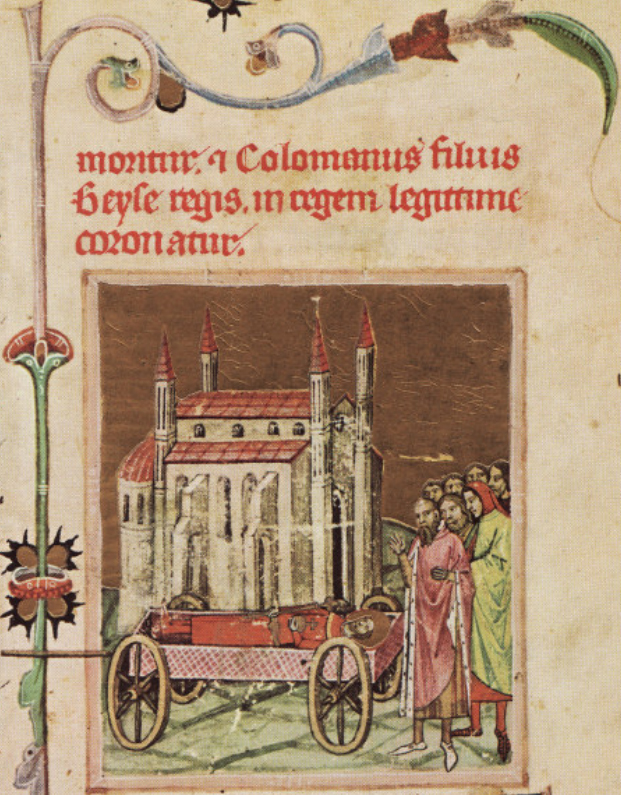 moritur. ⁊ Colomanus filius
Geyse regis. in regem legittime
coronatur.